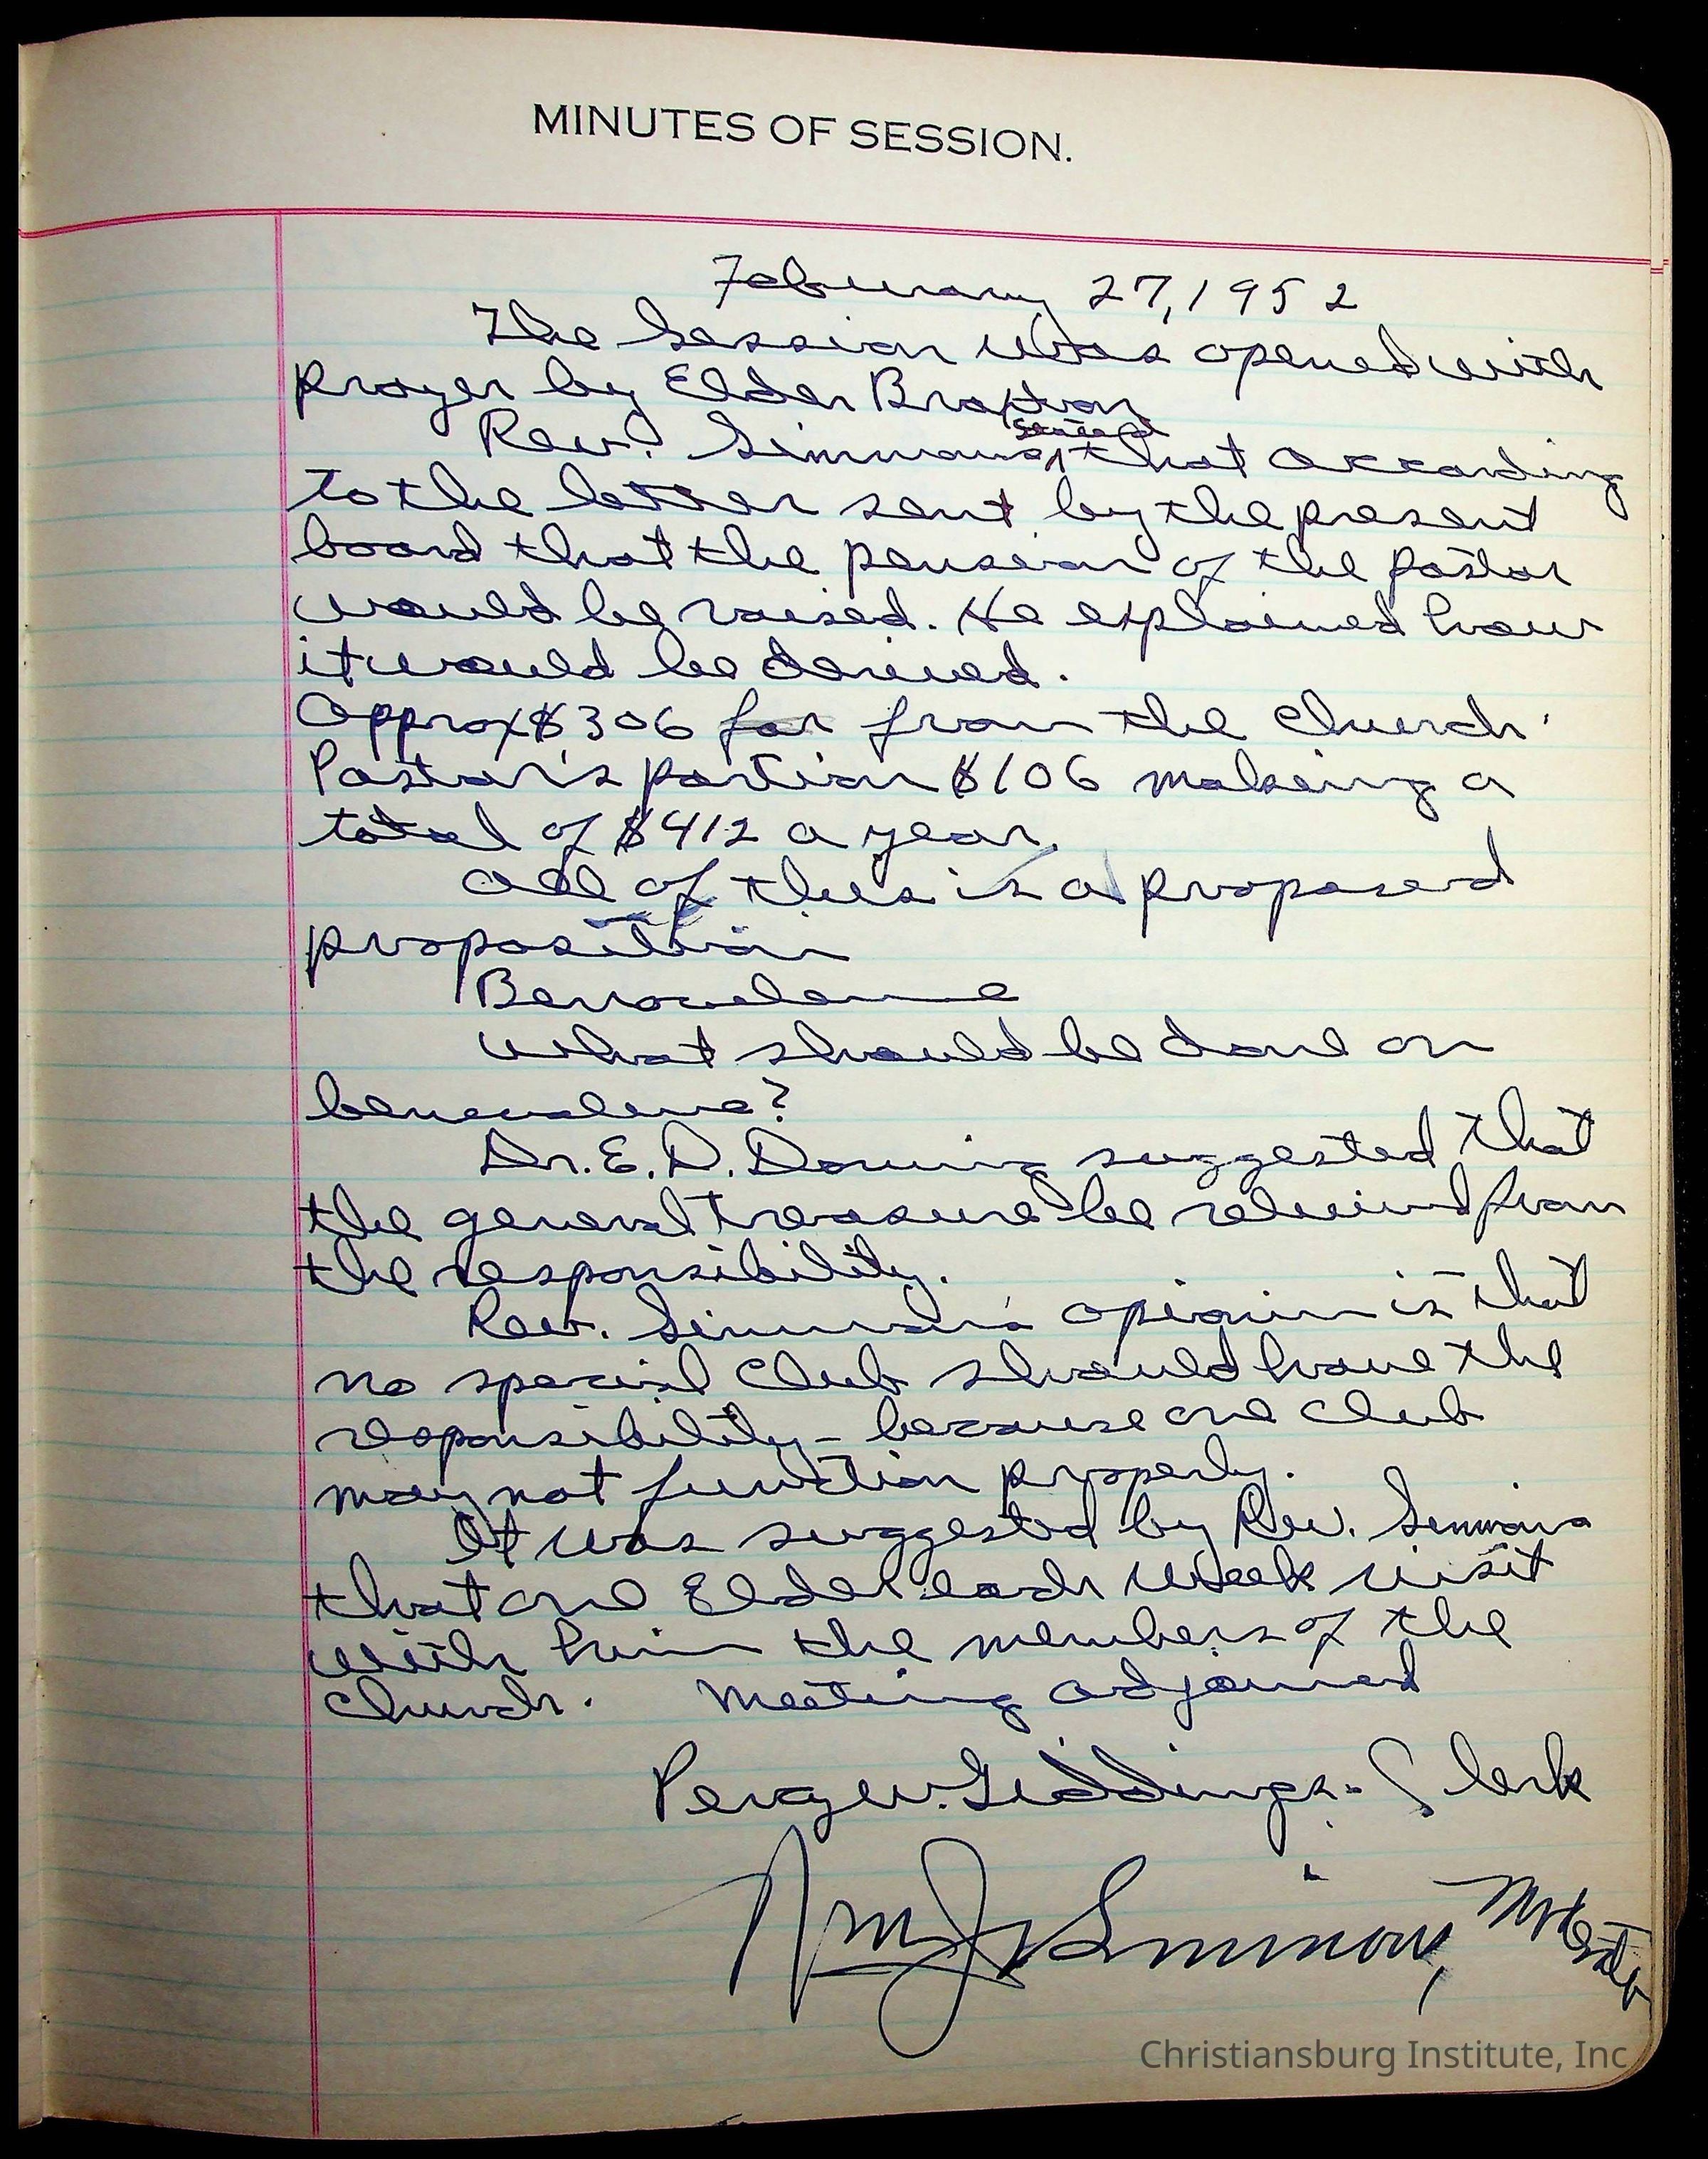 MINUTES OF SESSION.
February 27, 1952
The Session was opened with
prayer by Elder Braxton
Rev. Simmons stated that according
to the letter sent by the present
board that the pension of the pastor
would be raised. He explained how
it would be derived.
Approx $306 for from the Church.
Pastor's portion $106 making a
total of $412 a year.
All of this is a proposed
proposition
Benovelence
What should be done on
benevolence?
Dr. E. D. Downing suggested that
the general treasure be relieived from
the responsibility.
Rev. Simmons opinion is that
no special Club should have the
responsibility - because one Club
may not function properly.
It was suggested by Rev. Simmons
that one Elder each week visit
with him the members of the
Church. Meeting adjourned
Percy W. Giddings - Clerk
Wm J. Simmons, Moderator
Christiansburg Institute, Inc